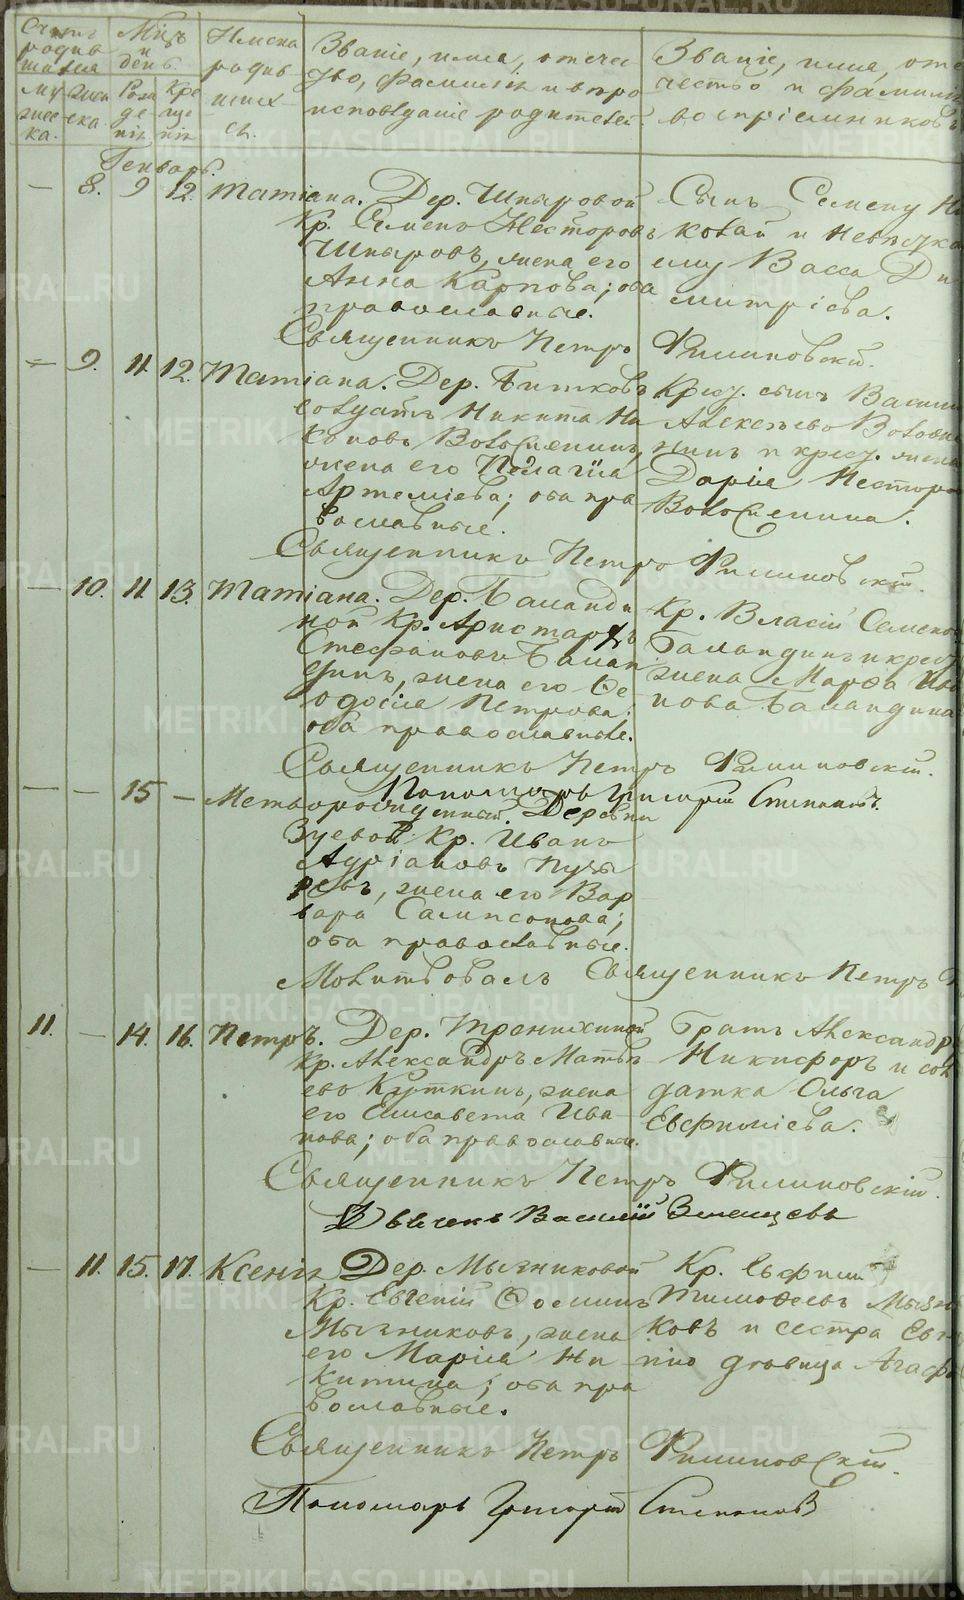 Счетъ родив шихся
Мсцъ и день.
Имена родив шихся.
Званіе, имя, отече
ство, фамилія и вѣро
исповѣданіе родителей.
Званіе, имя, оте
чество и фамилія
воспріемниковъ
му жес ка.
жен ска.
Рож де нія
Кре ще нія
Генварь.
— 8. 9 12. Татіана. Дер. Шныровой
Кр. Семенъ Несторовъ
Шныровъ, жена его
Анна Карпова; оба
православные.
Сынъ Семену Ни
колай и невѣстка
ему Васса Ди
митріева.
Священникъ Петръ Филиповскій.
— 9. 11. 12. Татіана. Дер. Битковъ
солдатъ Никита Ни
коновъ Волосненинъ,
жена его Пелагіа
Артеміева; оба пра
вославные.
Крест. сынъ Васил
Алексѣевъ Волосне
нинъ и крест. жена
Дарія Несторо
Волосненина.
Священникъ Петръ Филиповскій.
— 10. 11. 13. Татіана. Дер. Баланди
ной Кр. Аристархъ
Стефановъ Балан
динъ, жена его Ѳе
одосія Петрова;
оба православные.
Кр. Власій Семенов
Баландинъ и крест
жена Марѳа Ива
нова Баландина
Священникъ Петръ Филиповскій.
Пономарь Григорій Степановъ.
— — 15 — Мертворожденный. Деревни
Зуевой Кр. Иванъ
Адріановъ Пузы
ревъ, жена его Вар
вара Сампсонова;
оба православные.
Молитвовалъ Священникъ Петръ
11. — 14. 16. Петръ. Дер. Тронихиной
Кр. Александръ Матвѣ
евъ Куткинъ, жена
его Елисавета Ива
нова; оба православн.
Братъ Александр
Никифоръ и сол
датка Ольга
Евфиміева.
Священникъ Петръ Филиповскій.
Дьячекъ Василій
— 11. 15. 17. Ксенія Дер. Мызниковой
Кр. Евгеній Ѳоминъ
Мызниковъ, жена
его Марія Ни
китина; оба пра
вославные.
Кр. Евфим
Тимоѳеевъ Мызни
ковъ и сестра Евге
нію дѣвица Агаф
Священникъ Петръ Филиповскій.
Пономарь Григорій Степановъ
METRIKI.GASO-URAL.RU